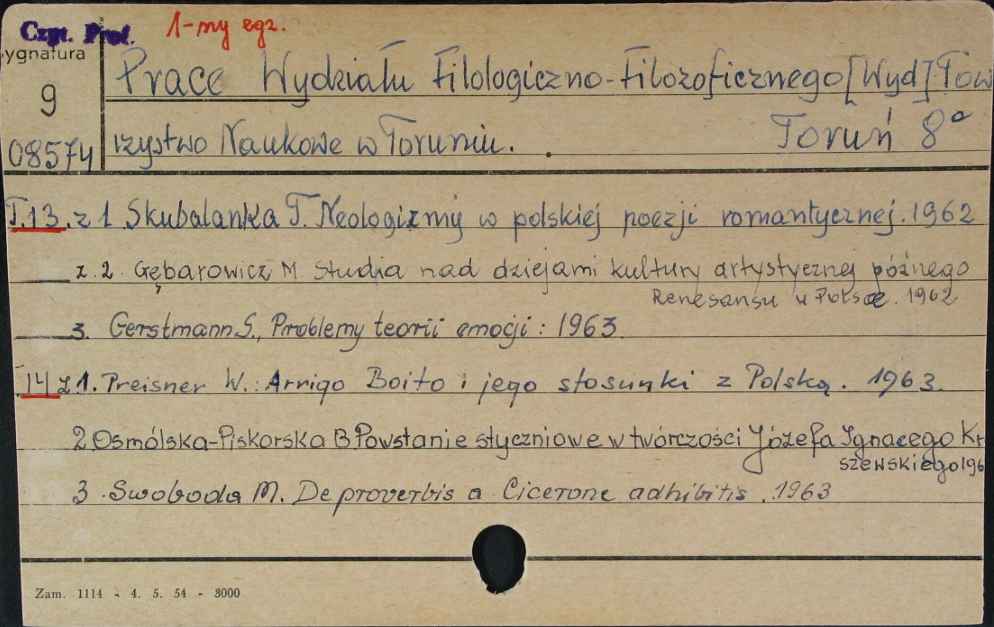 Czyt. Prof. 1-szy egz.
ygnatura
9
08574
Prace Wydziału Filologiczno-Filozoficznego [Wyd] Tow
rzystwo Naukowe w Toruniu. Toruń 8°
T.13. z 1. Skubalanka T. Neologizmy w polskiej poezji romantycznej. 1962
z. 2. Gębarowicz M Studia nad dziejami kultury artystycznej późnego
Renesansu w Polsce. 1962
3. Gerstmann S., Problemy teorii emocji: 1963
14 z 1. Preisner W.: Arrigo Boito i jego stosunki z Polską. 1963.
2 Osmólska-Piskorska B Powstanie styczniowe w twórczości Józefa Ignacego Kr
szewskiego 196
3. Swoboda M. De proverbis a Cicerone adhibitis. 1963
Zam. 1114 - 4. 5. 54 - 8000